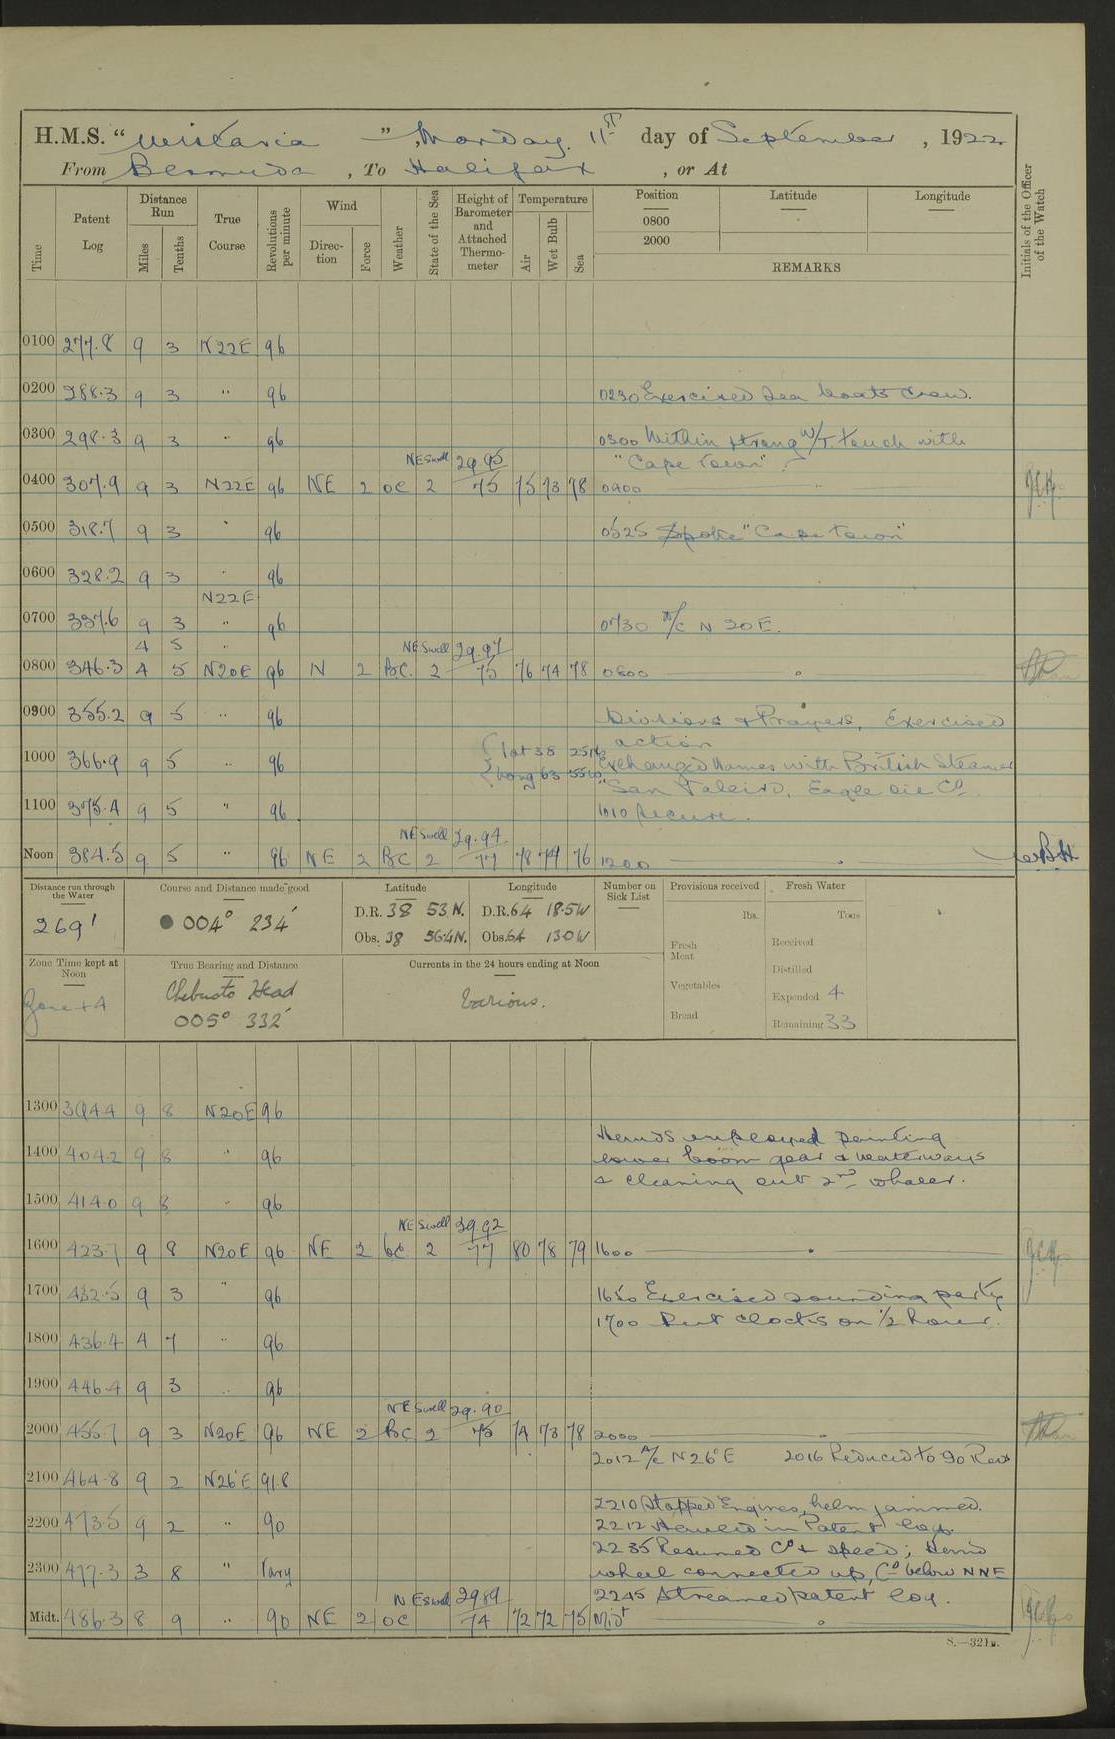 H.M.S. “ Wistaria ”, Monday. 11th day of September, 1922
From Bermuda, To Halifax, or At
Time
Patent Log
Distance Run
Miles
Tenths
True Course
Revolutions per minute
Wind
Direction
Force
Weather
State of the Sea
Height of Barometer and Attached Thermometer
Temperature
Air
Wet Bulb
Sea
Position Latitude Longitude
0800
2000
REMARKS
Initials of the Officer of the Watch
0100 277.8 9 3 N22E 96
0200 288.3 9 3 " 96 0230 Exercised sea boats crew.
0300 298.3 9 3 " 96 0300 Within strong W/T. touch with
NE Swell 29.95 "Cape Town".
0400 307.9 9 3 N22E 96 NE 2 OC 2 75 75 73 78 0400
0500 318.7 9 3 " 96 0525 Spoke "Cape Town"
0600 328.2 9 3 " 96
N22E
0700 337.6 9 3 " 96 0730 A/C N 20 E.
4 5 " NE Swell 29.97
0800 346.3 4 5 N20E 96 N 2 BC. 2 75 76 74 78 0800
0900 355.2 9 5 " 96 Divisions & Prayers, Exercised
action
1000 366.9 9 5 " 96 Lat 38 25 N Exchanged Names with British Steamer
Long 63 55 W "San , Eagle Oil Co.
1100 375.4 9 5 " 96 1010 Secure.
NE Swell 29.94
Noon 384.5 9 5 " 96 NE 2 BC 2 77 78 74 76 1200
Distance run through the Water
269'
Course and Distance made good
004° 234'
Latitude
D.R. 38 53 N.
Obs. 38 56.4 N.
Longitude
D.R. 64 18.5 W
Obs. 64 13.0 W
Number on Sick List
Provisions received
lbs.
Fresh Meat
Vegetables
Bread
Fresh Water
Tons
Received
Distilled
Expended 4
Remaining 33
Zone Time kept at Noon
Zone +4
True Bearing and Distance
Chebucto Head
005° 332'
Currents in the 24 hours ending at Noon
Various.
1300 394.4 9 8 N20E 96
Hands employed painting
1400 404.2 9 8 " 96 lower boom gear & waterways
& cleaning out 2nd whaler.
1500 414.0 9 8 " 96
NE Swell 29.92
1600 423.7 9 8 N20E 96 NE 2 bc 2 77 80 78 79 1600
1700 432.5 9 3 " 96 1650 Exercised sounding party
1700 Put clocks on 1/2 hour.
1800 436.4 4 7 " 96
1900 446.4 9 3 " 96
NE Swell 29.90
2000 455.7 9 3 N20E 96 NE 2 BC 2 75 74 73 78 2000
2012 A/C N26°E 2016 Reduced to 90 Revs
2100 464.8 9 2 N26°E 91.8
2210 Stopped Engines, helm jammed.
2200 473.5 9 2 " 90 2212 Hauled in Patent log.
2235 Resumed Co & speed; Hand
2300 477.3 3 8 " Vary wheel connected up, Co below NNE
NE Swell 29.89 2245 Streamed patent log.
Midt. 486.3 8 9 " 90 NE 2 OC 74 72 72 75 Midt
S.—321B.